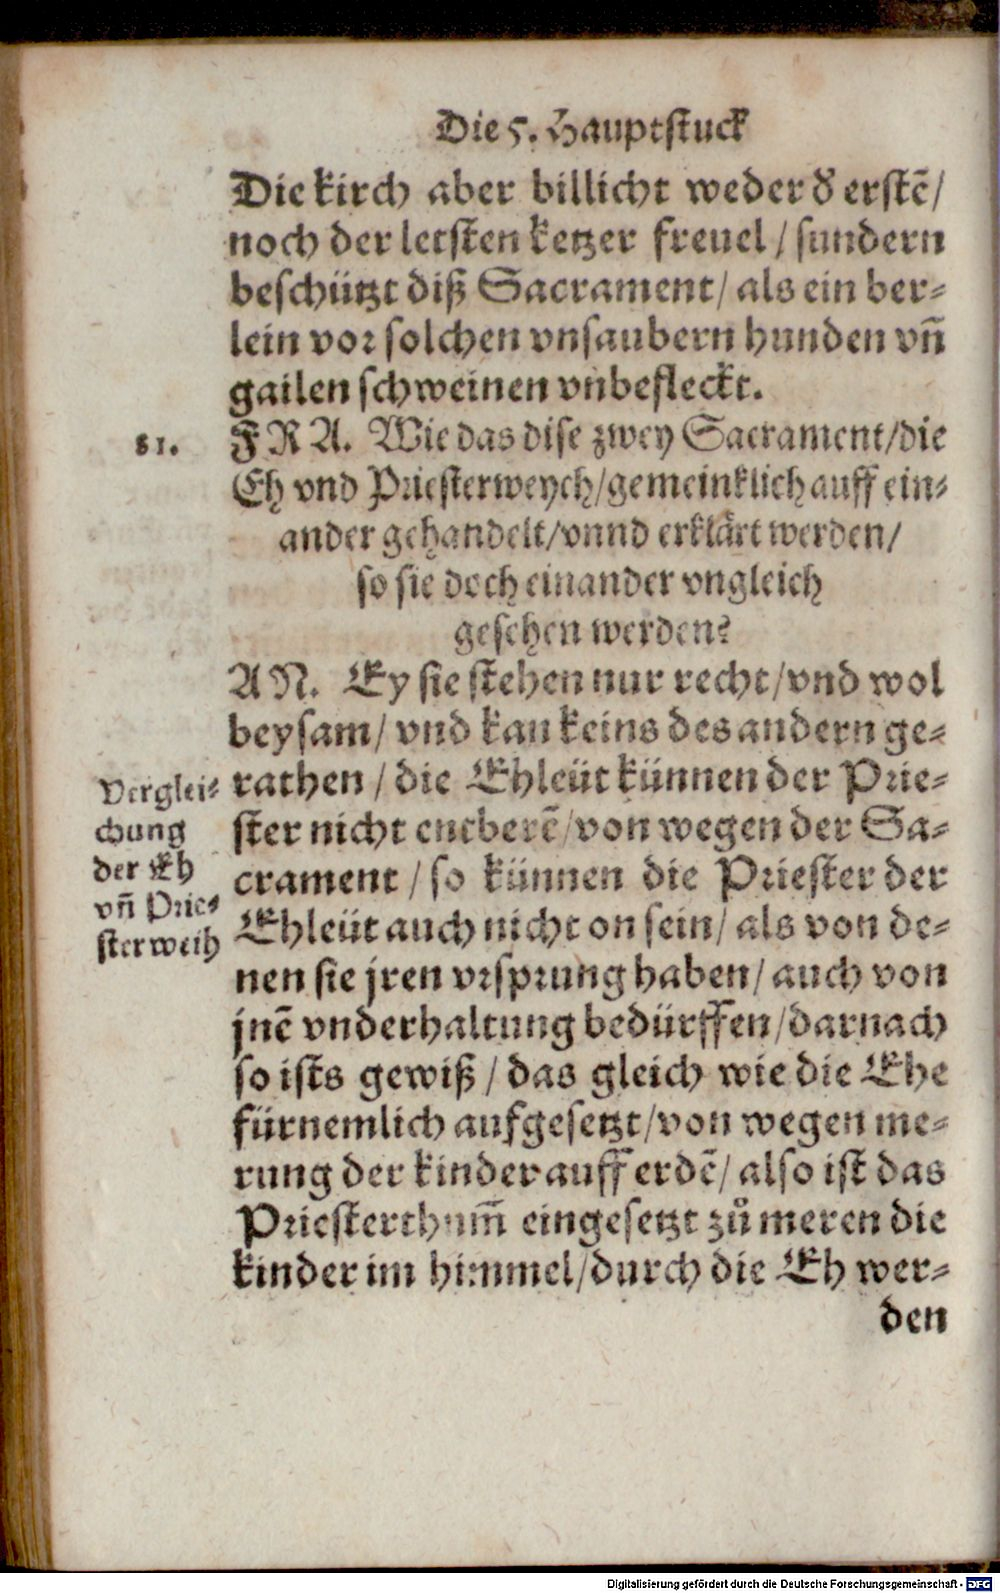 Die 5. Hauptstuck
Die kirch aber billicht weder d̕ erstẽ/
noch der letsten ketzer freuel/ sundern
beschützt diß Sacrament/ als ein ber-
lein vor solchen vnsaubern hunden vñ
gailen schweinen vnbefleckt.
81.
FRA. Wie das dise zwey Sacrament/die
Eh vnd Priesterweych/gemeinklich auff ein-
ander gehandelt/vnnd erklärt werden/
so sie doch einander vngleich
gesehen werden?
AN. Ey sie stehen nur recht/vnd wol
beysam/ vnd kan keins des andern ge-
rathen / die Ehleüt künnen der Prie-
ster nicht entberẽ/von wegen der Sa-
crament / so künnen die Priester der
Ehleüt auch nicht on sein/ als von de-
nen sie jren vrsprung haben/ auch von
jnẽ vnderhaltung bedürffen/darnach
so ists gewiß / das gleich wie die Ehe
fürnemlich aufgesetzt/von wegen me-
rung der kinder auff erdẽ/ also ist das
Priesterthum̃ eingesetzt zů meren die
kinder im himmel/durch die Eh wer-
den
Verglei-
chung
der Eh
vñ Prie-
sterweih
Digitalisierung gefördert durch die Deutsche Forschungsgemeinschaft - DFG